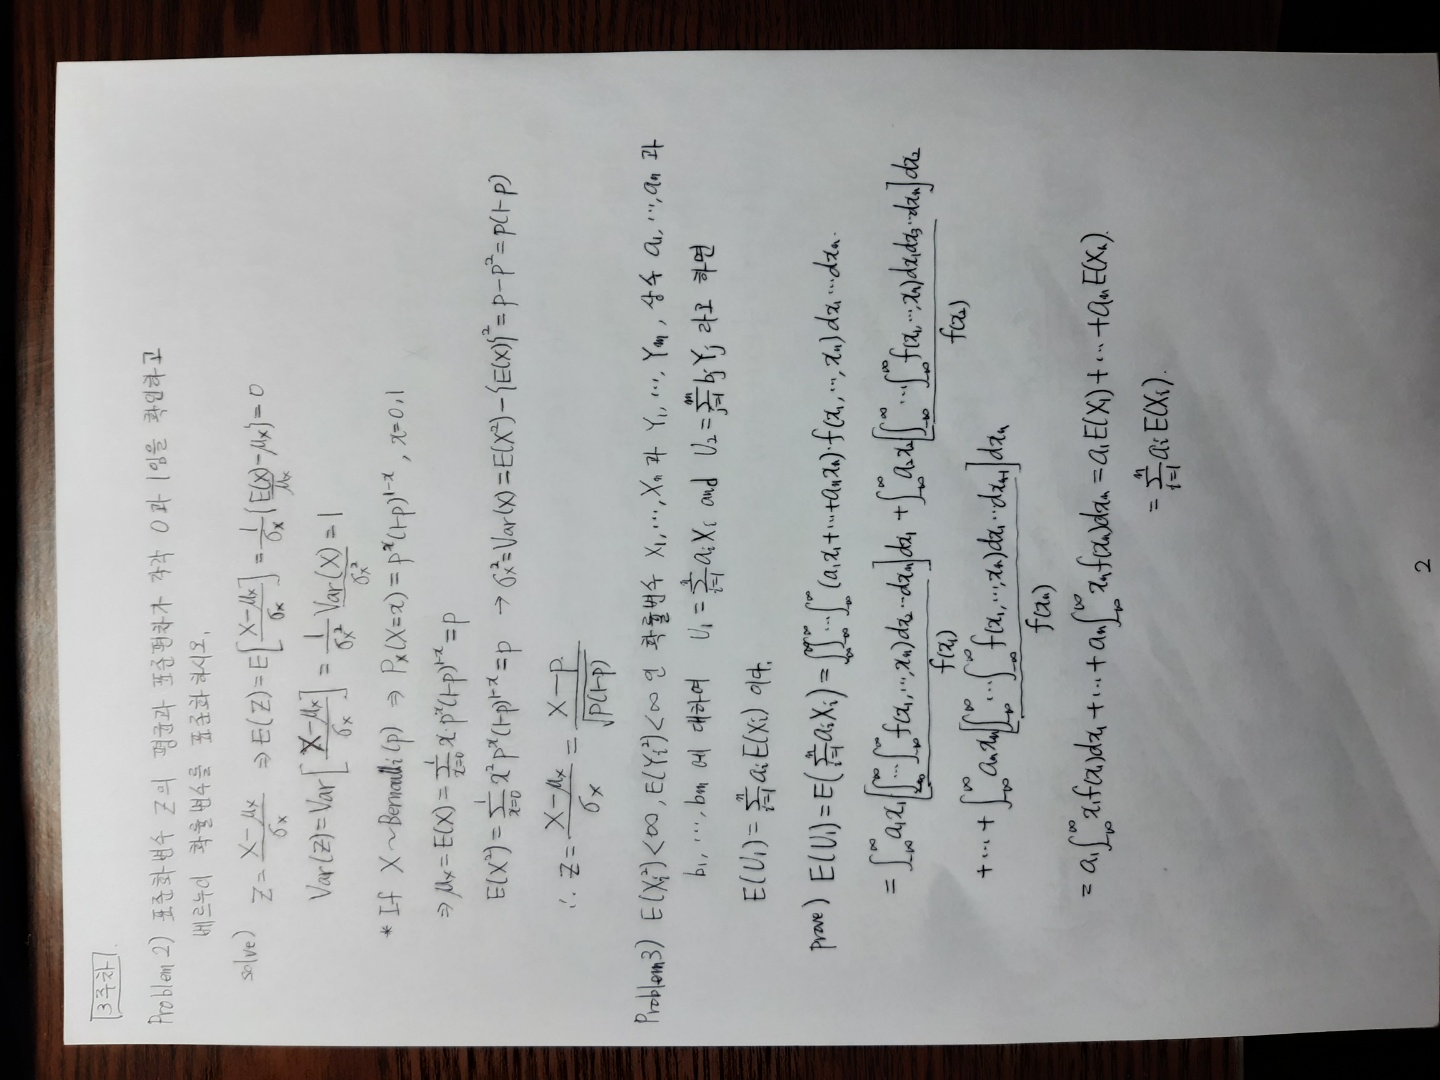 3주차.
Problem 2) 표준화변수 Z의 평균과 표준편차가 각각 0과 1임을 확인하고
베르누이 확률변수를 표준화하시오.
solve) Z = (X-μx)/σx ⇒ E(Z) = E[(X-μx)/σx] = 1/σx {E(X)-μx} = 0
μx
Var(Z) = Var[(X-μx)/σx] = 1/σx² Var(X) = 1
σx²
* If X ~ Bernoulli(p) ⇒ Px(X=x) = p^x(1-p)^(1-x), x=0,1
⇒ μx = E(X) = Σ_{x=0}^{1} x·p^x(1-p)^(1-x) = p
E(X²) = Σ_{x=0}^{1} x² p^x(1-p)^(1-x) = p → σx² = Var(X) = E(X²) - {E(X)}² = p - p² = p(1-p)
∴ Z = (X-μx)/σx = (X-p)/√(p(1-p))
Problem3) E(Xi²)<∞, E(Yi²)<∞ 인 확률변수 X1, ⋯, Xn 과 Y1, ⋯, Ym, 상수 a1, ⋯, an 과
b1, ⋯, bm 에 대하여 U1 = Σ_{i=1}^{n} aiXi and U2 = Σ_{j=1}^{m} bjYj 라고 하면
E(U1) = Σ_{i=1}^{n} aiE(Xi) 이다.
prove) E(U1) = E(Σ_{i=1}^{n} aiXi) = ∫_{-∞}^{∞}∫_{-∞}^{∞}⋯∫_{-∞}^{∞} (a1x1+⋯+anxn)·f(x1, ⋯, xn) dx1⋯dxn.
= ∫_{-∞}^{∞} a1x1[∫_{-∞}^{∞}⋯∫_{-∞}^{∞} f(x1, ⋯, xn)dx2⋯dxn]dx1 + ∫_{-∞}^{∞} a2x2[∫_{-∞}^{∞}⋯∫_{-∞}^{∞} f(x1, ⋯, xn)dx1dx3⋯dxn]dx2
f(x1) f(x2)
+⋯+ ∫_{-∞}^{∞} anxn[∫_{-∞}^{∞}⋯∫_{-∞}^{∞} f(x1, ⋯, xn)dx1⋯dxn-1]dxn
f(xn)
= a1∫_{-∞}^{∞} x1f(x1)dx1 +⋯+ an∫_{-∞}^{∞} xnf(xn)dxn = a1E(X1)+⋯+anE(Xn).
= Σ_{i=1}^{n} aiE(Xi).
2